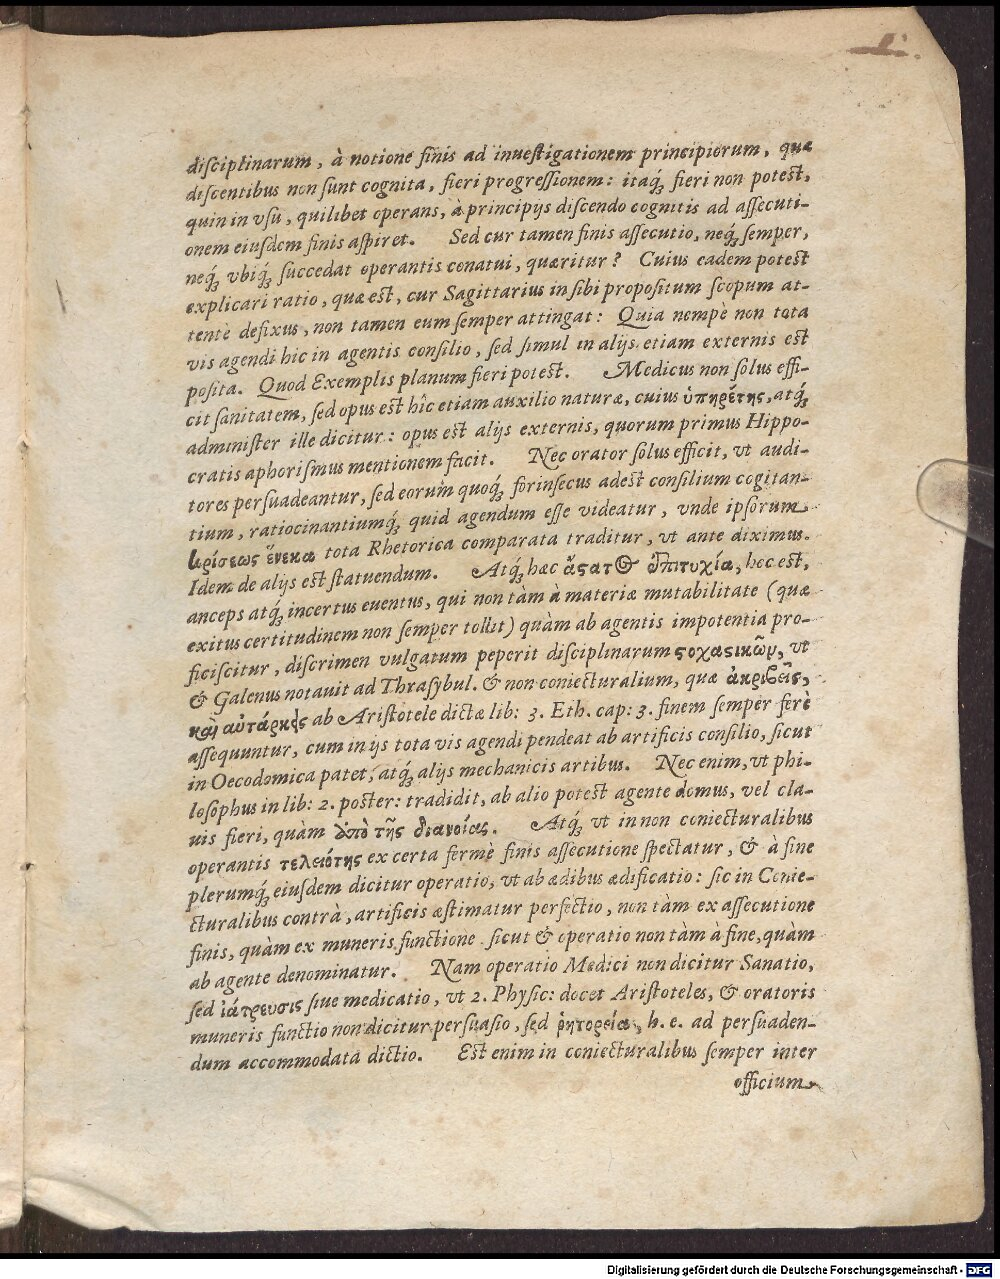 1.
disciplinarum, à notione finis ad inuestigationem principiorum, quæ
discentibus non sunt cognita, fieri progressionem: itaq́; fieri non potest,
quin in vsu, quilibet operans, à principijs discendo cognitis ad assecuti-
onem eiusdem finis aspiret. Sed cur tamen finis assecutio, neq́; semper,
neq́; vbiq́; succedat operantis conatui, quæritur? Cuius eadem potest
explicari ratio, quæ est, cur Sagittarius in sibi propositum scopum at-
tentè defixus, non tamen eum semper attingat: Quia nempè non tota
vis agendi hic in agentis consilio, sed simul in alijs etiam externis est
posita. Quod Exemplis planum fieri potest. Medicus non solus effi-
cit sanitatem, sed opus est hîc etiam auxilio naturæ, cuius ὑπηρέτης, atq́;
administer ille dicitur: opus est alijs externis, quorum primus Hippo-
cratis aphorismus mentionem facit. Nec orator solus efficit, vt audi-
tores persuadeantur, sed eorum quoq́; forinsecus adest consilium cogitan-
tium, ratiocinantiumq́; quid agendum esse videatur, vnde ipsorum
κρίσεως ἕνεκα tota Rhetorica comparata traditur, vt ante diximus.
Idem de alijs est statuendum. Atq́; hæc ἄςατος ἐπιτυχία, hoc est,
anceps atq́; incertus euentus, qui non tàm à materiæ mutabilitate (quæ
exitus certitudinem non semper tollit) quàm ab agentis impotentia pro-
ficiscitur, discrimen vulgatum peperit disciplinarum ςοχαςικῶν, vt
& Galenus notauit ad Thrasybul. & non coniecturalium, quæ ἀκριβεῖς,
καὶ αὐτάρκεις ab Aristotele dictæ lib: 3. Eth. cap: 3. finem semper ferè
assequuntur, cum in ijs tota vis agendi pendeat ab artificis consilio, sicut
in Oecodomica patet, atq́; alijs mechanicis artibus. Nec enim, vt phi-
losophus in lib: 2. poster: tradidit, ab alio potest agente domus, vel cla-
uis fieri, quàm ἀπὸ τῆς διανοίας. Atq́; vt in non coniecturalibus
operantis τελειότης ex certa fermè finis assecutione spectatur, & à fine
plerumq́; eiusdem dicitur operatio, vt ab ædibus ædificatio: sic in Conie-
cturalibus contrà, artificis æstimatur perfectio, non tàm ex assecutione
finis, quàm ex muneris functione sicut & operatio non tàm à fine, quàm
ab agente denominatur. Nam operatio Medici non dicitur Sanatio,
sed ἰάτρευσις siue medicatio, vt 2. Physic: docet Aristoteles, & oratoris
muneris functio non dicitur persuasio, sed ῥητορεία, h. e. ad persuaden-
dum accommodata dictio. Est enim in coniecturalibus semper inter
officium
Digitalisierung gefördert durch die Deutsche Forschungsgemeinschaft - DFG